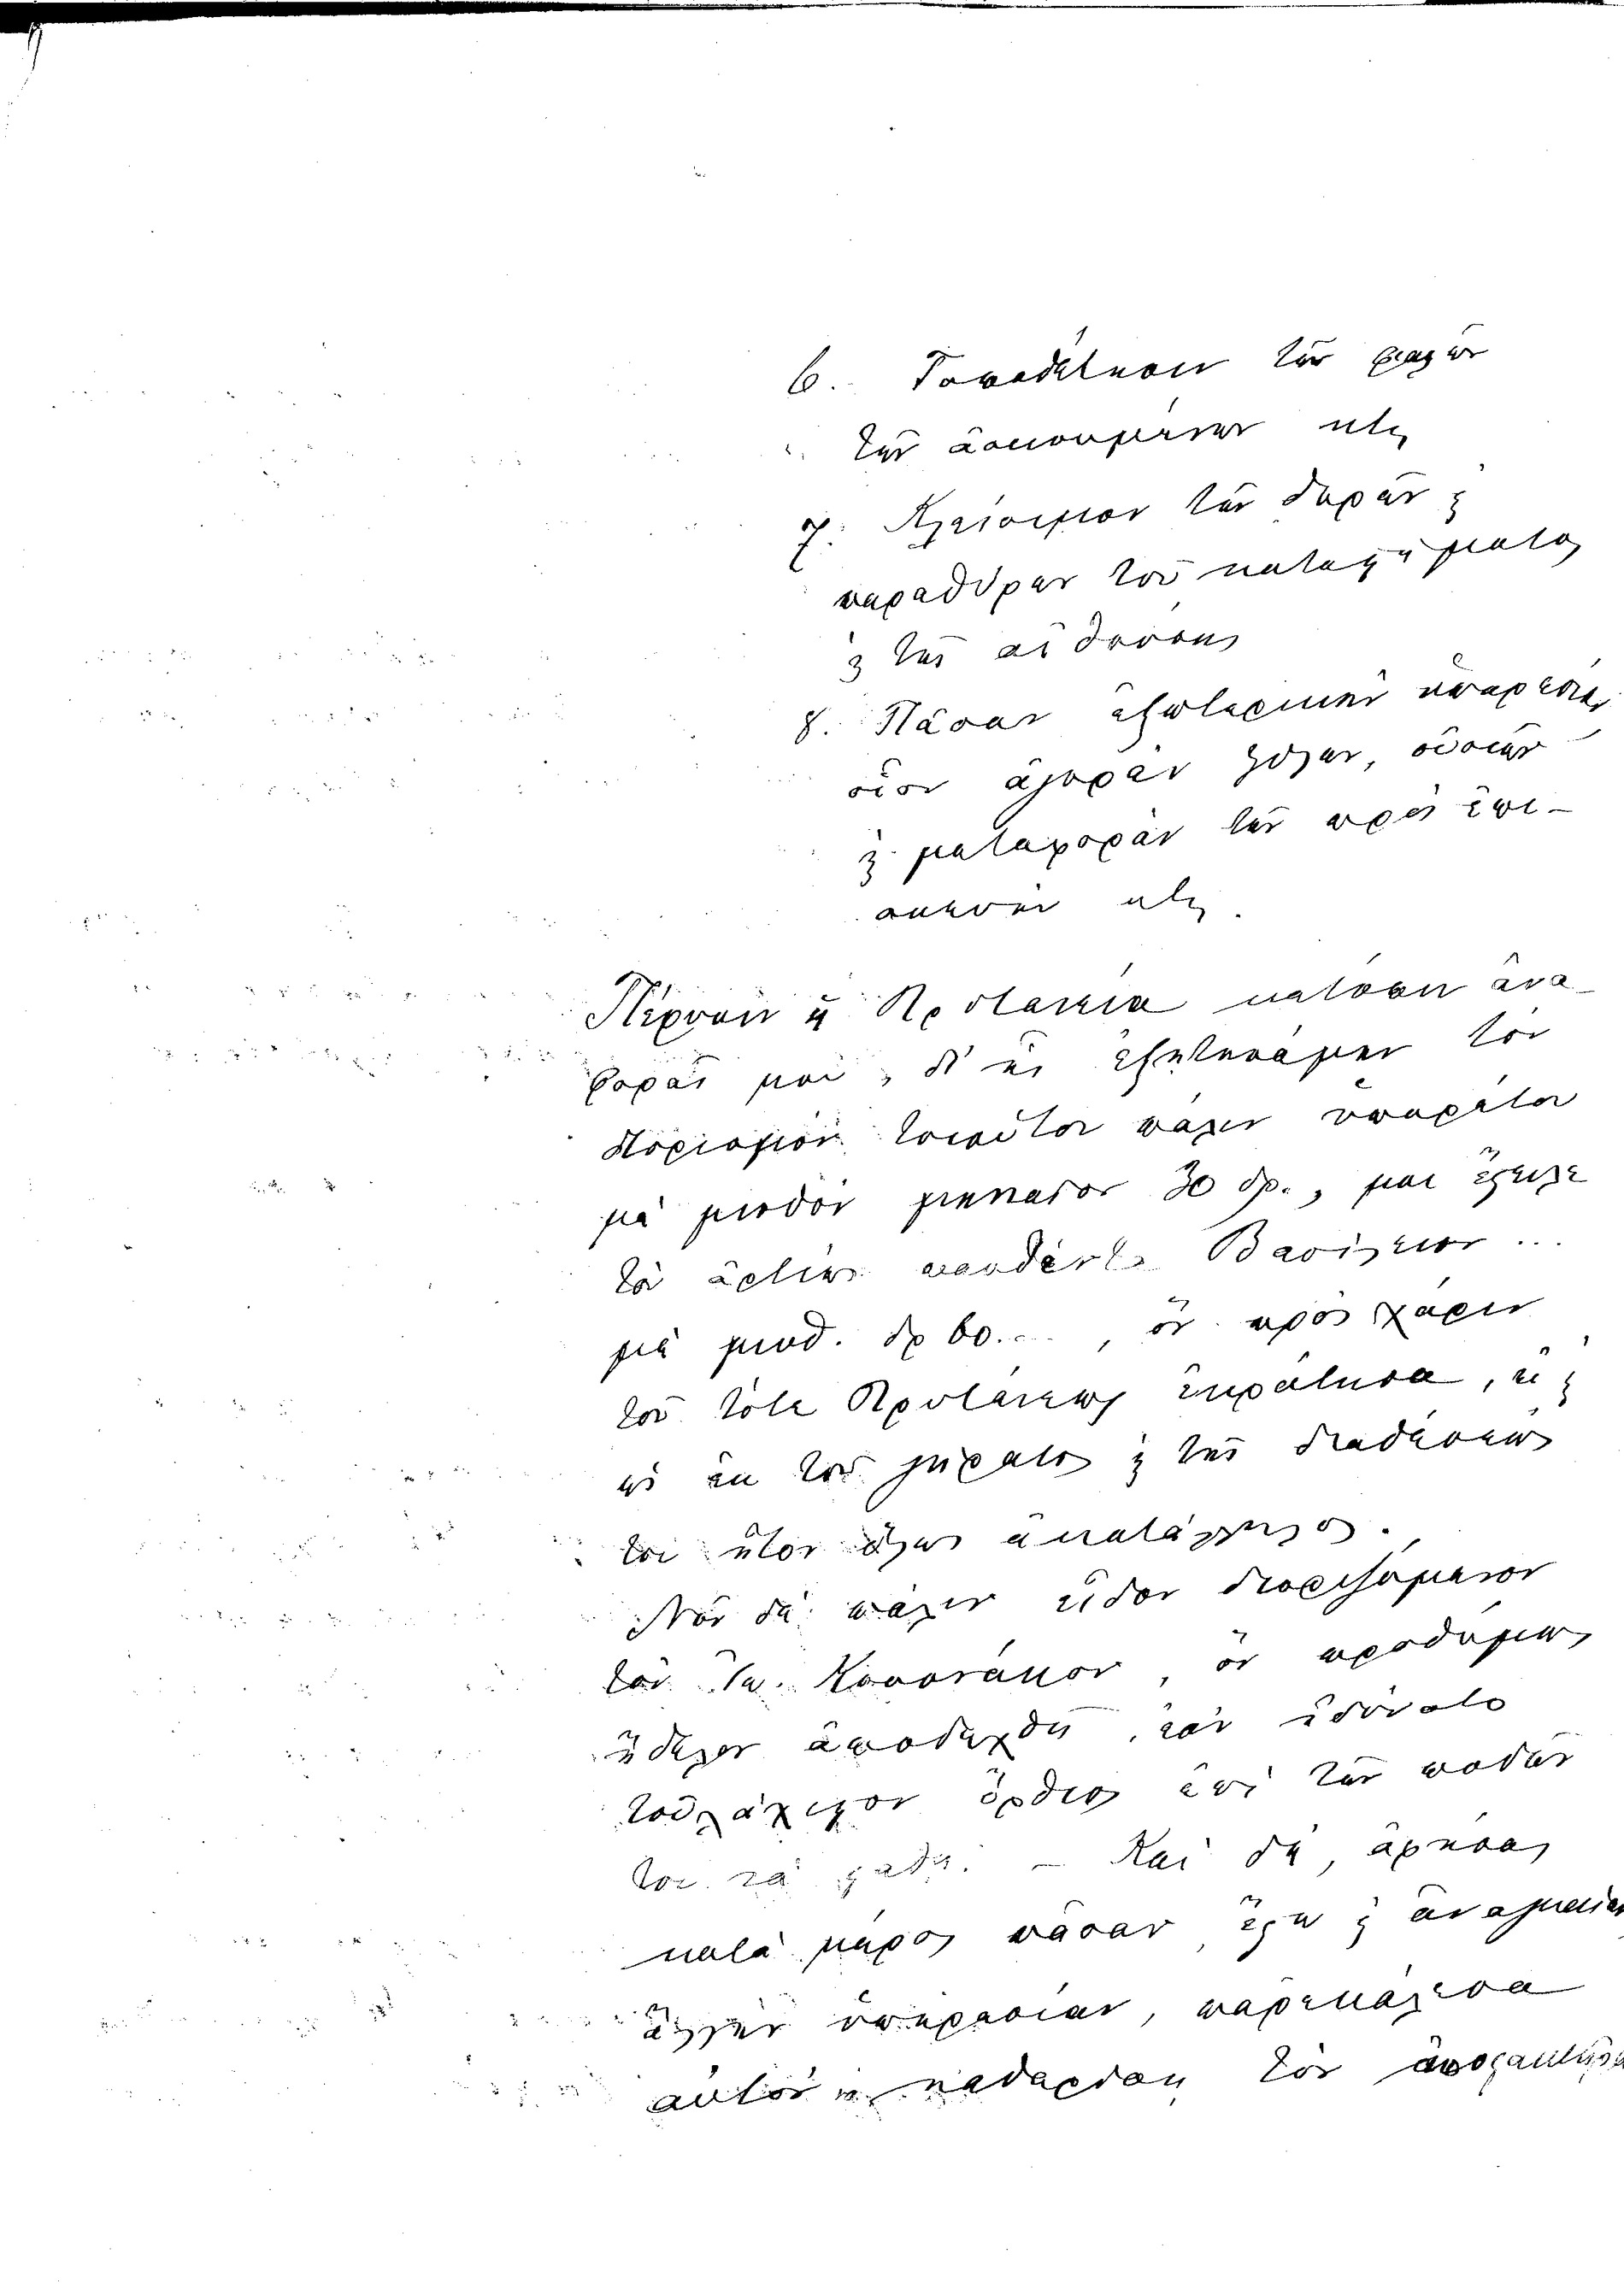 6. Τοποθέτησιν τῶν φιαλῶν
τῶν ἀσκουμένων κτλ
7. Κλείσιμον τῶν θυρῶν ϗ
παραθύρων τοῦ καταστήματος
ϗ τῆς αἰθούσης
8. Πᾶσαν ἐξωτερικὴν ὑπηρεσίαν,
οἷον ἀγορὰν ξύλων, οὐσιῶν
ϗ μεταφορὰν τῶν πρὸς ἐπι-
σκευὴν κτλ.
Πέρυσιν ἡ Πρυτανεία κατόπιν ἀνα-
φορᾶς μου, δι' ἧς ἐξῃτησάμην τὸν
διορισμὸν τοιούτου πάλιν ὑπηρέτου
μὲ μισθὸν μηνιαῖον 30 δρ., μοι ἔστειλε
τὸν ἀρτίως παυθέντα Βασίλειον ...
μὲ μισθ. δρ 60...., ὃν πρὸς χάριν
τοῦ τότε Πρυτάνεως ἐκράτησα, εἰ ϗ
ὡς ἐκ τοῦ γήρατος ϗ τῆς διαθέσεώς
του ἦτον ὅλως ἀκατάλληλος.
Νῦν δὲ πάλιν εἶδον διοριζόμενον
τὸν Κουσνάκον, ὃν προθύμως
ἤθελον ἀποδεχθῆ, ἐὰν ἐδύνατο
τοὐλάχιστον ὄρθιος ἐπὶ τῶν ποδῶν
του νὰ σταθῇ. – Καὶ δὴ, ἀφήσας
κατὰ μέρος πᾶσαν, ἔστω ϗ ἀναγκαίαν
ἄλλην ὑπηρεσίαν, παρεκάλεσα
αὐτὸν νὰ καθαρίσῃ τὸν ἀποστακτῆρα